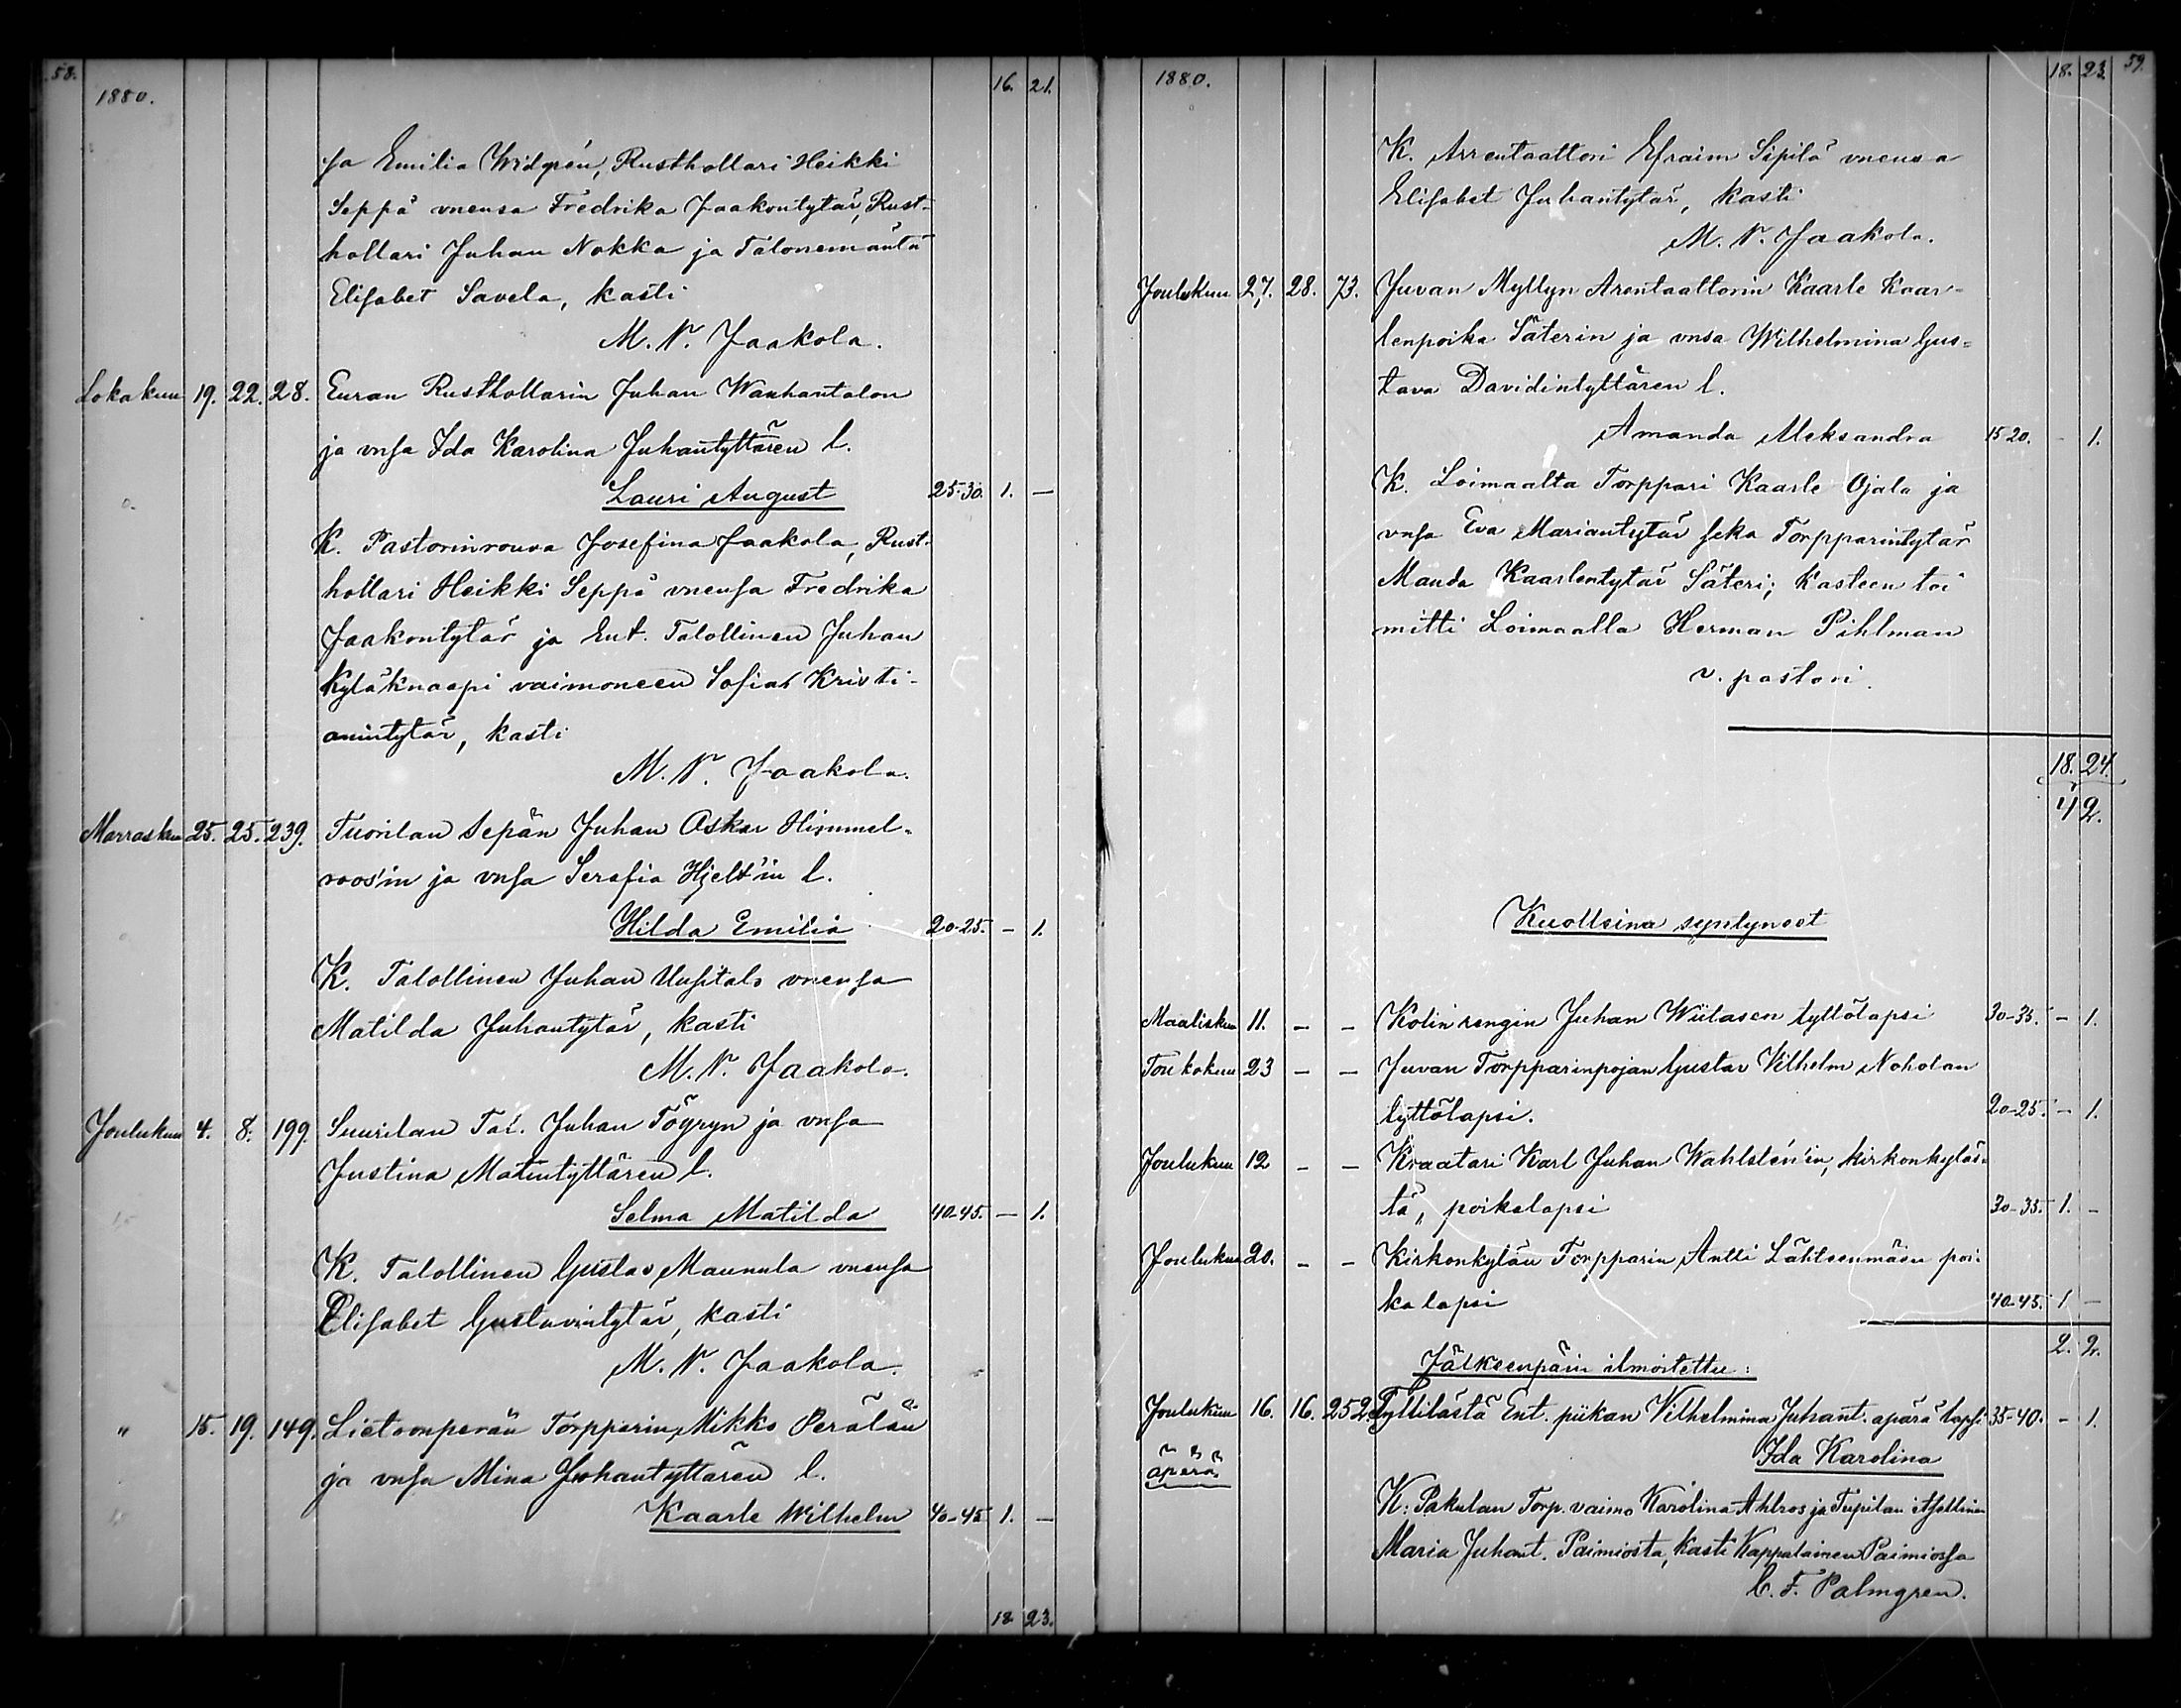 58.
1880.
16. 21.
ja Emilia Widgrén, Rusthollari Heikki
Seppä vneensa Fredrika Jaakontytär, Rust-
hollari Juhan Nokka ja Talonemäntä
Elisabet Savela, kasti
M. N. Jaakola.
Lokakuu 19. 22. 28. Euran Rusthollarin Juhan Wanhantalon
ja vnsa Ida Karolina Juhantyttären l.
Lauri August 25-30. 1. —
K. Pastorinrouva Josefina Jaakola, Rust-
hollari Heikki Seppä vneensa Fredrika
Jaakontytär ja Ent. Talollinen Juhan
Kyläknaapi vaimoneen Sofia Kristi-
anintytär, kasti
M. N. Jaakola.
Marraskuu 25. 25. 239. Tuorilan Sepän Juhan Oskar Himmel-
roos'in ja vnsa Serafia Hjelt'in l.
Hilda Emilia 20-25. — 1.
K. Talollinen Juhan Uusitalo vneensa
Matilda Juhantytär, kasti
M. N. Jaakola.
Joulukuu 4. 8. 199. Suurilan Tal. Juhan Töyryn ja vnsa
Justina Matintyttären l.
Selma Matilda 40-45. — 1.
K. Talollinen Gustav Maunula vneensa
Elisabet Gustavintytär, kasti
M. N. Jaakola.
" 15. 19. 149. Lietsonperän Torpparin Mikko Perälän
ja vnsa Mina Juhantyttären l.
Kaarle Wilhelm 40-45 1. —
18. 23.
1880.
18. 23. 59.
K. Arrentaattori Efraim Sipilä vneensa
Elisabet Juhantytär, kasti
M. N. Jaakola.
Joulukuu 27. 28. 73. Juvan Myllyn Arentaattorin Kaarle Kaar-
lenpoika Säterin ja vnsa Wilhelmina Gus-
tava Davidintyttären l.
Amanda Aleksandra 15-20. - 1.
K. Loimaalta Torppari Kaarle Ojala ja
vnsa Eva Mariantytär seka Torpparintytär
Manda Kaarlentytär Säteri; kasteen toi
mitti Loimaalla Herman Pihlman
v. pastori.
18. 24.
42.
Kuolleina syntyneet
Maaliskuu 11. — — Kolin rengin Juhan Wiitasen tyttölapsi 30-35. — 1.
Toukokuu 23 — — Juvan Torpparinpojan Gustav Vilhelm Noholan
tyttölapsi. 20-25. — 1.
Joulukuu 12 — — Kraatari Karl Juhan Wahlstén'in, kirkonkyläs-
tä, poikalapsi 30-35. 1. -
Joulukuu 20. — — Kirkonkylän Torpparin Antti Lähteenmäen poi-
kalapsi 40-45. 1 —
2. 2.
Jälkeenpäin ilmoitettu:
Joulukuu 16. 16. 252. Tyllilästä Ent. piikan Vilhelmina Juhant. äpärä lapsi 35-40. — 1.
äpärä
Ida Karolina
K: Pakulan Torp. vaimo Karolina Ahlros ja Tupilan itsellinen
Maria Juhant. Paimiosta, Kasti Kappalainen Paimiossa
C. F. Palmgren.